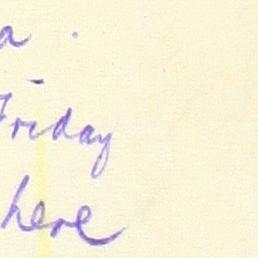 a.
Friday
here